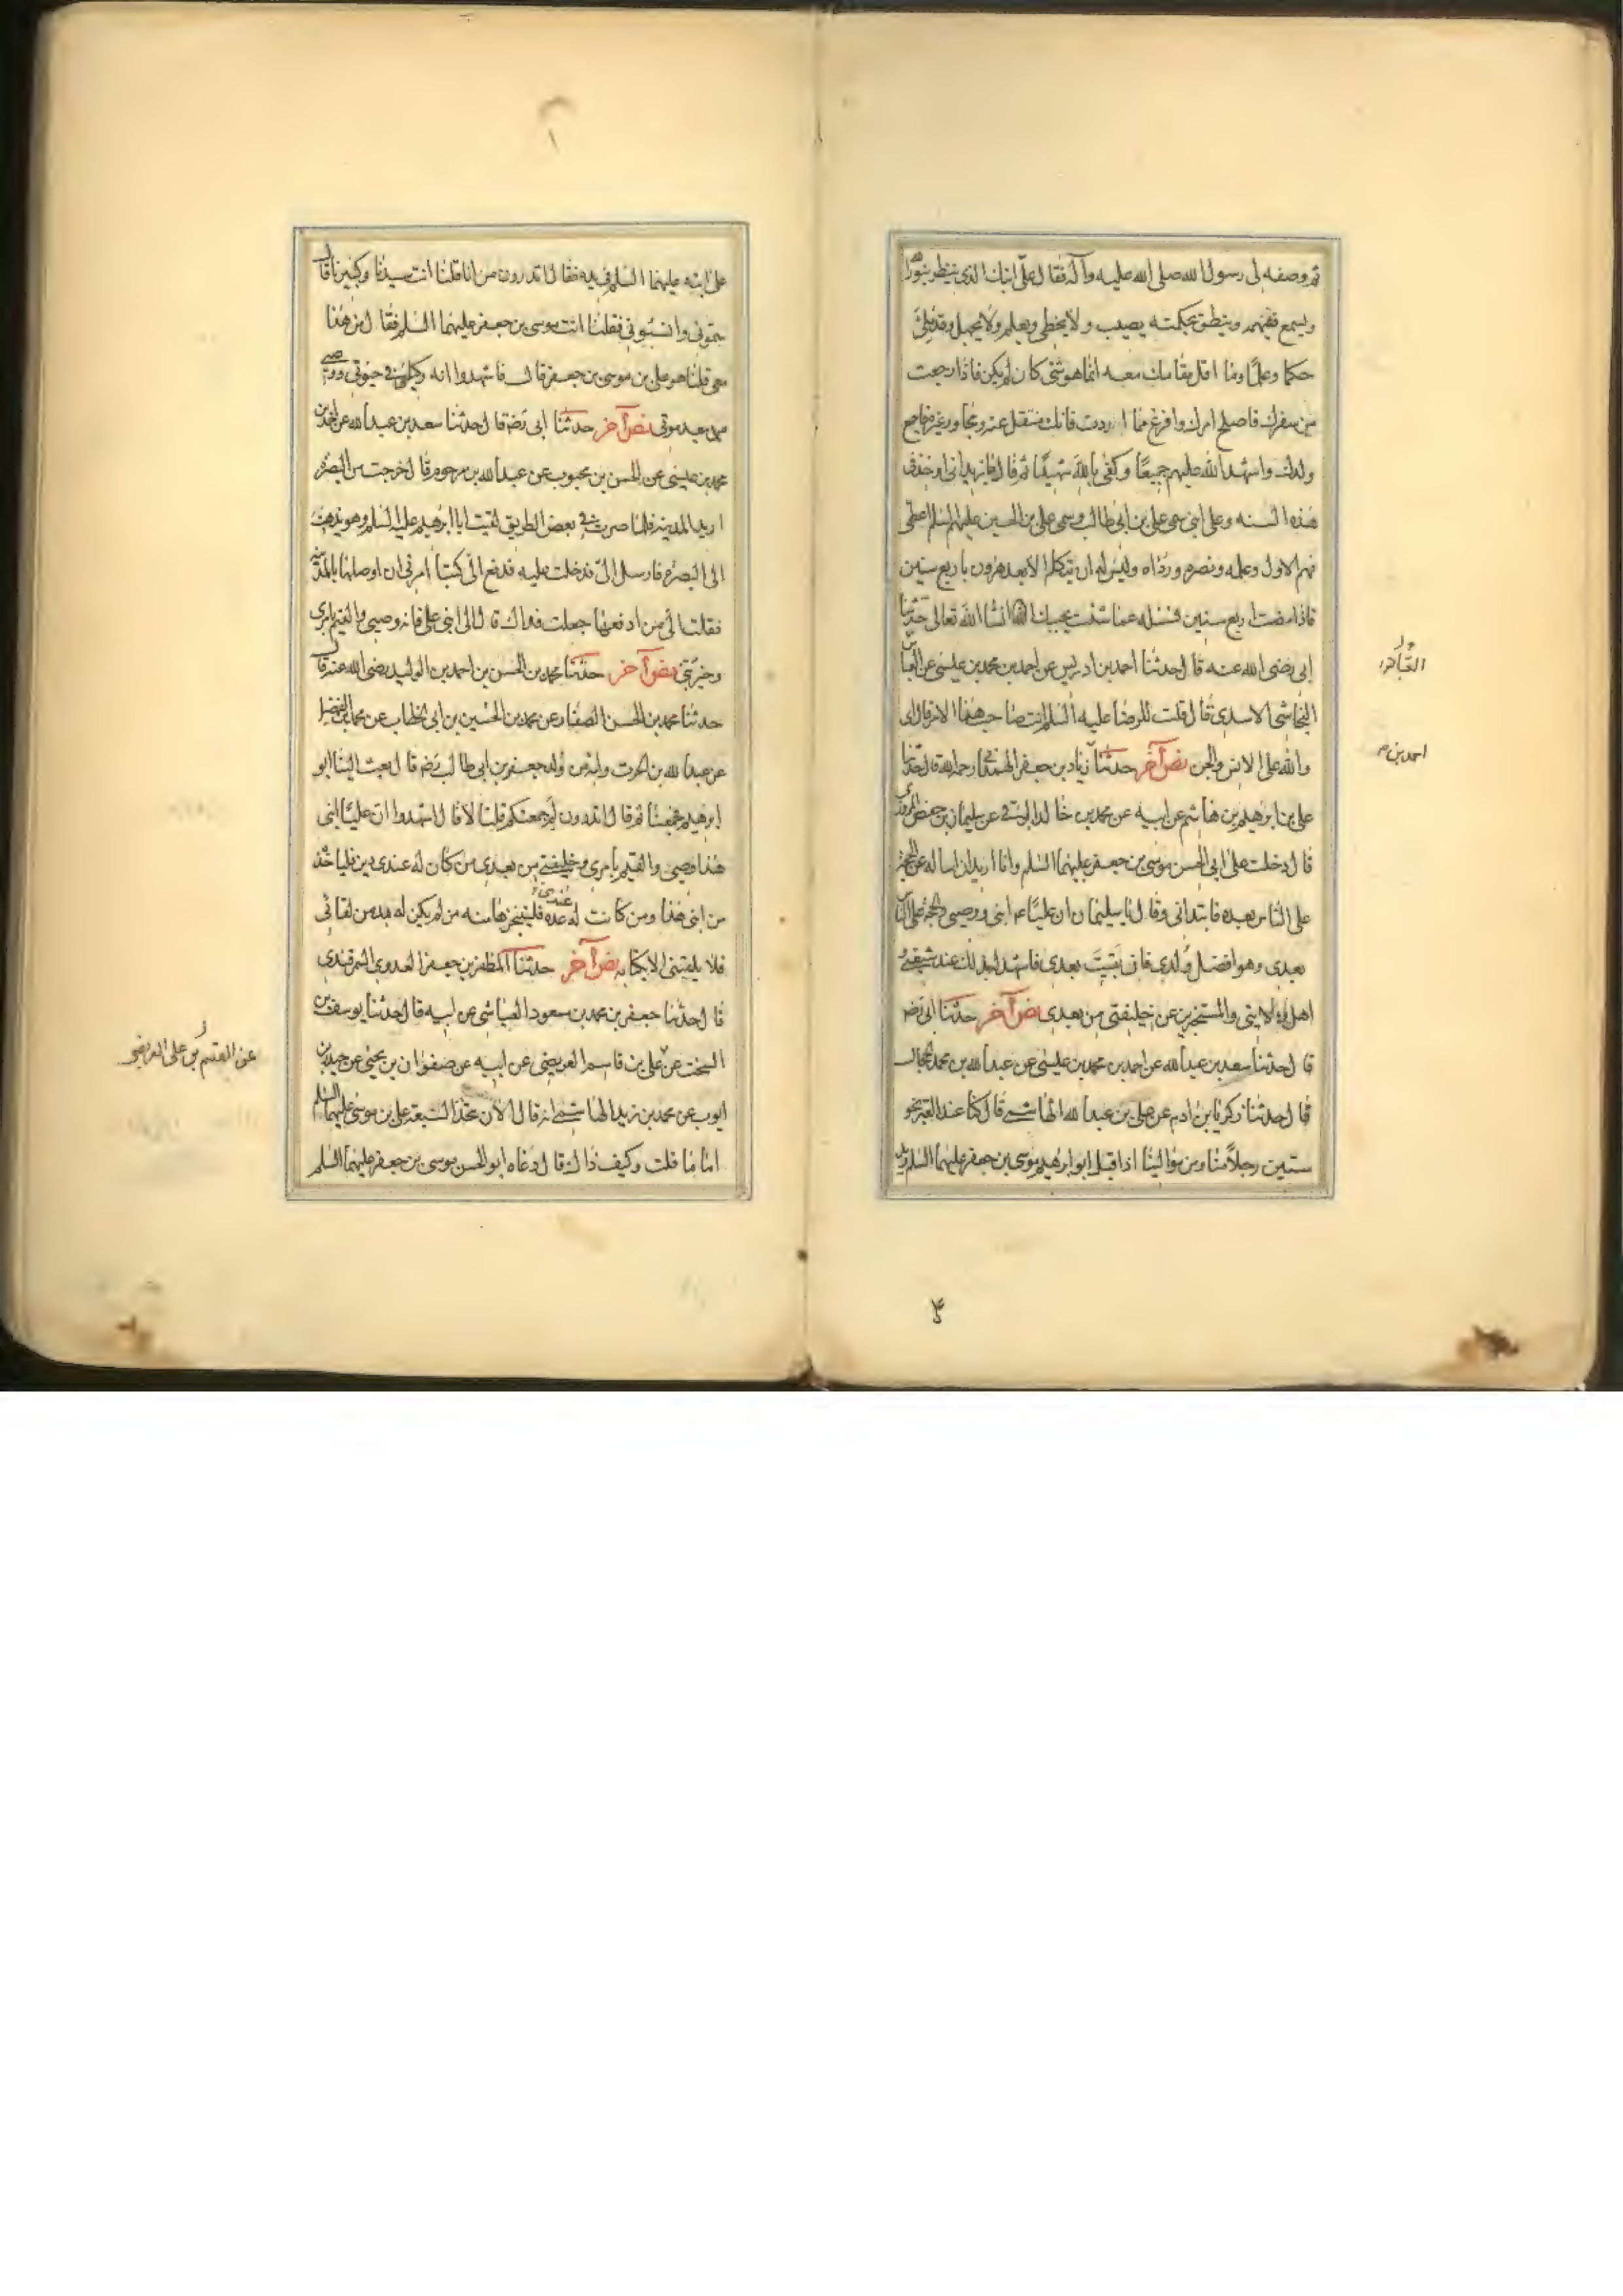 ثم وصفه لی رسول الله صلی الله علیه وآله فقال علیّ ابنك الذی ینظر بنور الله
ویسمع بتفهیمه وینطق بحکمته یصیب ولا یخطی ویعلم ولا یجهل وقد ملئ
حکما وعلمًا وما اقل مقامك معه انما هو شئ کان لم یکن فاذا رجعت
من سفرك فاصلح امرك وافرغ مما اردت فانك منتقل عنه ومجاور غیره فاجمع
ولدك واشهد الله علیهم جمیعًا وکفی بالله شهیدًا ثم قال یا یزید انی اوخذ فی
هذه السنه وعلی ابنی سمی علی بن ابی طالب وسمی علی بن الحسین علیهم السلم اعطی
فهم الاول وعلمه ونصره ورداه ولیس له ان یتکلم الا بعد هرون باربع سنین
فاذا مضت اربع سنین فسئله عما شئت یجیبك انشا الله تعالی حدثنا
ابی رضی الله عنه قال حدثنا احمد بن ادریس عن احمد بن محمد بن عیسی عن العباس
النجاشی الاسدی قال قلت للرضا علیه السلم انت صاحب هذا الامر قال ای
والله علی الانس والجن نص آخر حدثنا زیاد بن جعفر الهمدانی رحمه الله قال حدثنا
علی بن ابرهیم بن هاشم عن ابیه عن محمد بن خالد البرقی عن سلیمان بن حفص المروزی
قال دخلت علی ابی الحسن موسی بن جعفر علیهما السلم وانا ارید ان اساله عن الحجة
علی الناس بعده فابتدانی وقال یا سلیمان ان علیًا ابنی ووصیی والحجة علی الناس
بعدی وهو افضل ولدی فان بقیت بعدی فاشهد له بذلك عند شیعتی و
اهل ولایتی والمستخبرین عن خلیفتی من بعدی نص آخر حدثنا ابی رضه
قال حدثنا سعد بن عبدالله عن احمد بن محمد بن عیسی عن عبدالله بن محمد الحجال
قال حدثنا زکریا بن ادم عن علی بن عبدالله الهاشمی قال کنا عند القبر نحو
ستین رجلاً منا ومن موالینا اذا قبل ابو ابرهیم موسی بن جعفر علیهما السلم وید
احمد بن
۴
علی ابنه علیهما السلم فی یده فقال اتدرون من انا قلنا انت سیدنا وکبیرنا قال
سمونی وانسبونی فقلنا انت موسی بن جعفر علیهما السلم فقال من هذا
معی قلنا هو علی بن موسی بن جعفر قال فاشهدوا انه وکیلی فی حیوتی ووصیی
من بعد موتی نص آخر حدثنا ابی رضه قال حدثنا سعد بن عبدالله عن احمد بن
محمد بن عیسی عن الحسن بن محبوب عن عبدالله بن مرحوم قال خرجت من البصره
ارید المدینه فلما صرت فی بعض الطریق لقیت ابا ابرهیم علیه السلم وهو یذهب
الی البصره فارسل الیّ فدخلت علیه فدفع الیّ کتبًا امرنی ان اوصلها بالمدینه
فقلت الی من ادفعها جعلت فداك قال الی ابنی علی فانه وصیی والقیم بامری
وخیر بنی نص آخر حدثنا محمد بن الحسن بن احمد بن الولید رضی الله عنه قال
حدثنا محمد بن الحسن الصفار عن محمد بن الحسین بن ابی الخطاب عن محمد بن الفضیل
عن عبدالله بن الحرث وامه من ولد جعفر بن ابی طالب رضه قال بعث الینا ابو
ابرهیم فجمعنا ثم قال اتدرون لم جمعتکم قلنا لا قال اشهدوا ان علیًا ابنی
هذا وصیی والقیم بامری وخلیفتی من بعدی من کان له عندی دین فلیاخذه
من ابنی هذا ومن کانت له عندی عدة فلیتنجزها منه ومن لم یکن له بد من لقائی
فلا یلقینی الا بکتابه نص آخر حدثنا المظفر بن جعفر العدوی السمرقندی
قال حدثنا جعفر بن محمد بن مسعود العیاشی عن ابیه قال حدثنا یوسف بن
السخت عن علی بن قاسم العریضی عن ابیه عن صفوان بن یحیی عن حیدر بن
ایوب عن محمد بن زید الهاشمی انه قال الان تتخذ الشیعة علی بن موسی علیهما السلم
امامًا قلت وکیف ذاك قال دعاه ابو الحسن موسی بن جعفر علیهما السلم
عن القسم بن علی العریضی